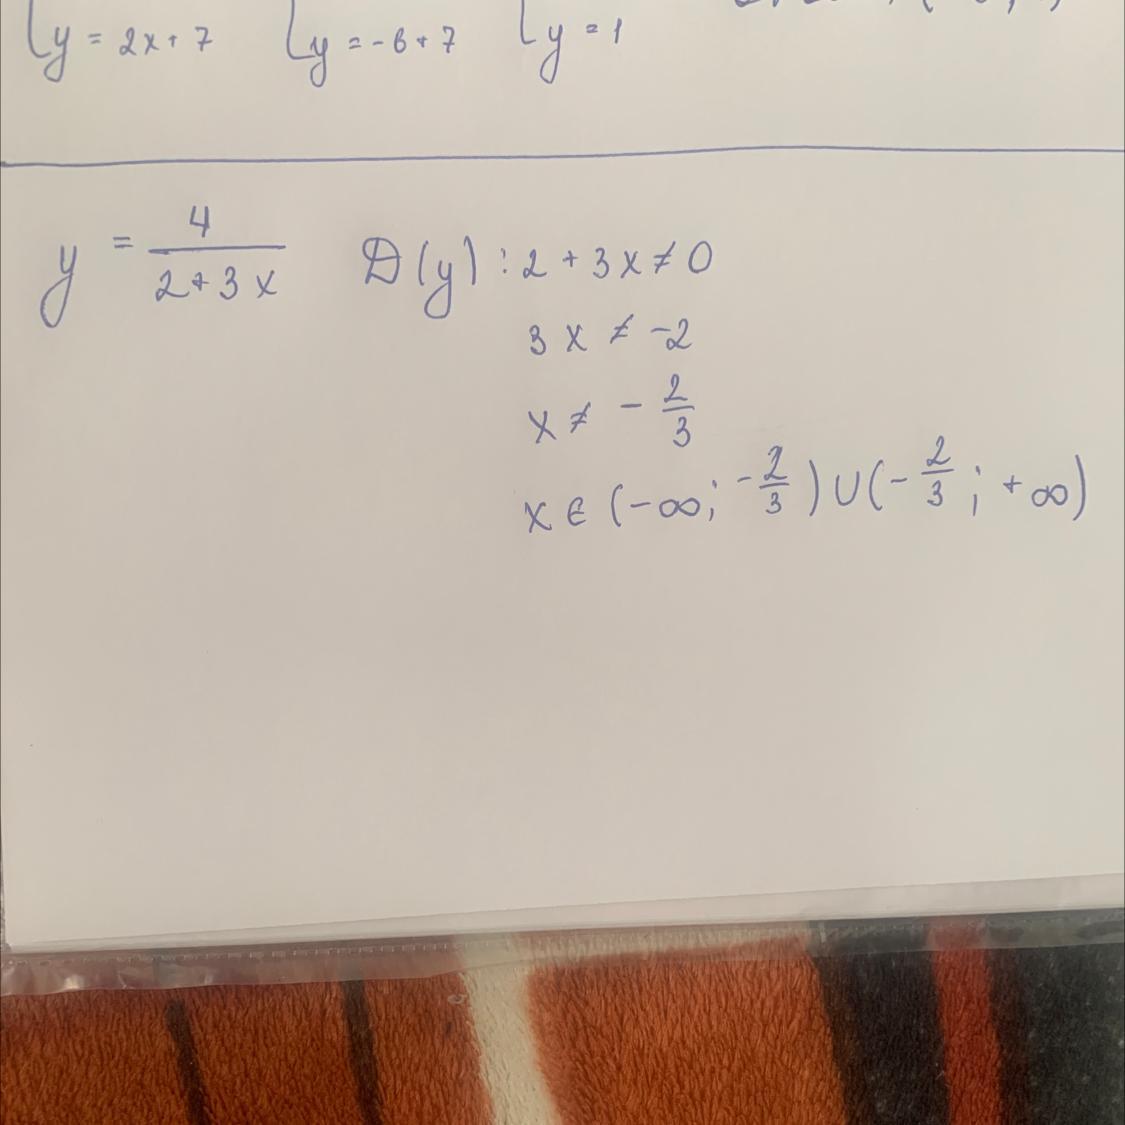 y = 2x + 7 y = -6 + 7 y = 1
y = 4/(2+3x) D(y) : 2 + 3x ≠ 0
3x ≠ -2
x ≠ - 2/3
x ∈ (-∞; -2/3) ∪ (-2/3; +∞)